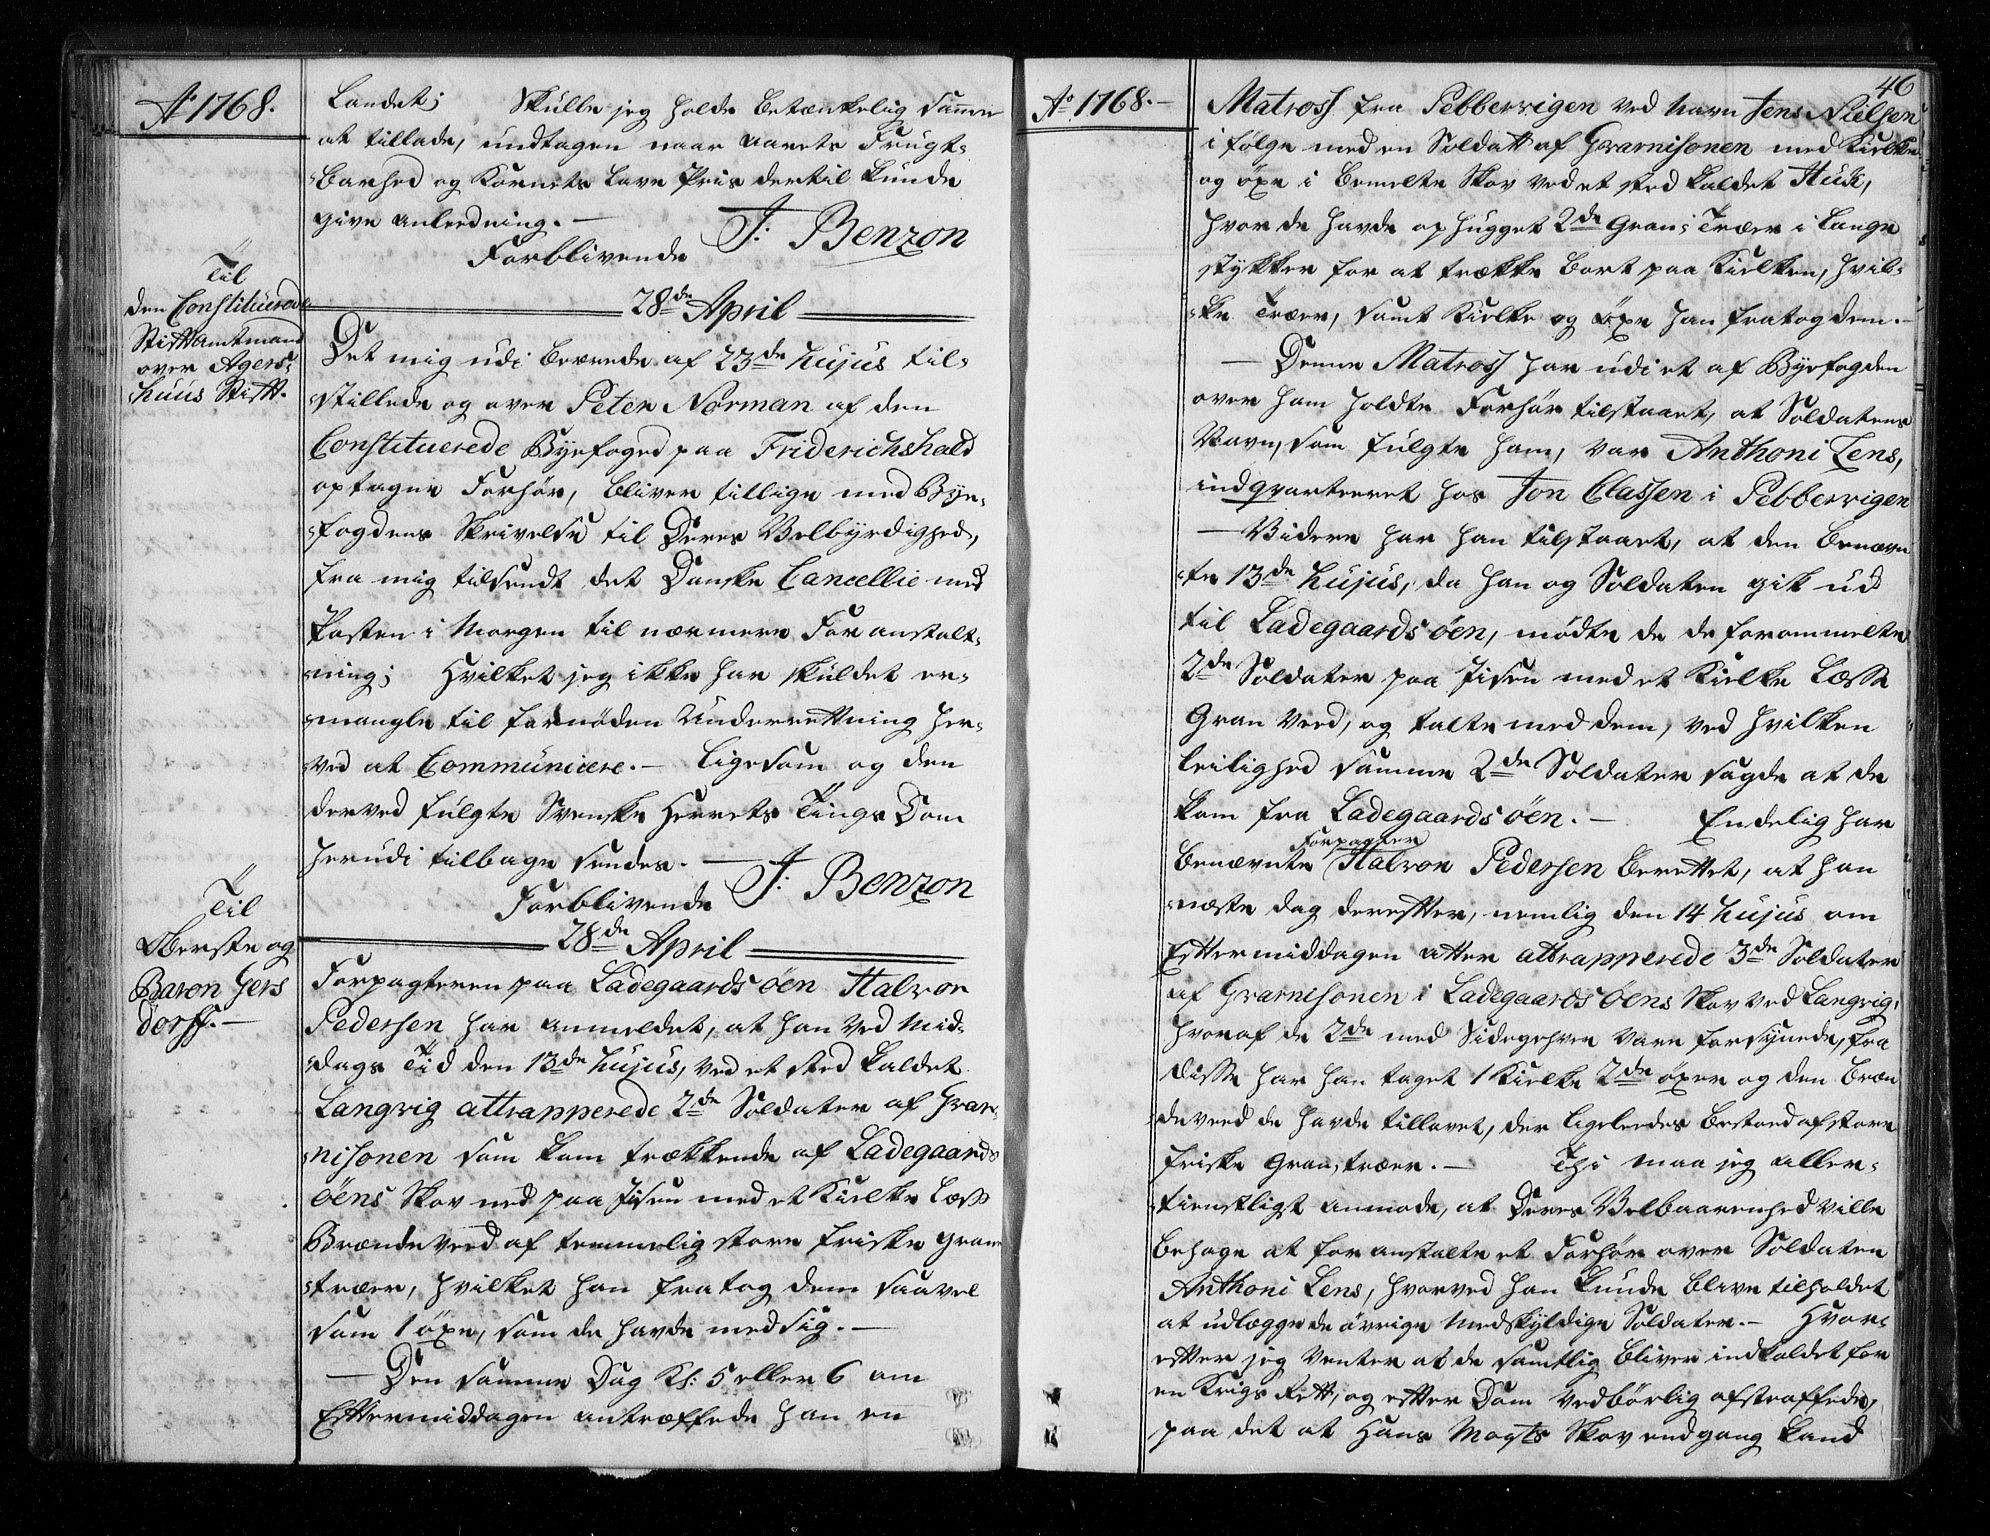 Ao 1768.
Landet; Skulle jeg holde betænkelig samme
at tillade, undtagen naar aarets Frugt-
barhed og Kornets lave Pris dertil kunde
give anledning.—
Forblivende J: Benzon
28de April
Til
den Constituerede
Stiftamtmand
over Agers-
huus Stift.
Det mig udi breved af 23de hujus til-
stillede og over Peter Norman af den
Constituerede Byefoged paa Friderichshald
optagne Forhør, bliver tillige med Bye-
fogdens Skrivelse til Deres Velbyrdighed,
fra mig tilsendt det Danske Cancellie med
Posten i Morgen til nærmere Foranstalt-
ning; Hvilket jeg ikke har skuldet er-
mangle til fornøden Underrettning her-
ved at Communicere.— Ligesom og den
derved fulgte Svenske Herrets Tings Dom
herudi tilbage sendes.—
Forblivende J: Benzon
28de April
Til
Oberste og
Baron Gers
dorff.—
Forpagteren paa Ladegaards øen Halvor
Pedersen har anmeldet, at han ved Mid-
dags Tid den 13de hujus, ved et sted kaldet
Langvig attrapperede 2de Soldater af Gvar-
nisonen som kom trækkende af Ladegaards
øens Skov ned paa Jisen med et Kielke Læss
Brændeveed af temmelig store friske gran
træer, hvilket han fratog dem saavel
som 1 øxe, som de havde med sig.—
— Den samme Dag Kl: 5 eller 6 om
Eftermiddagen antræffede han en
46
Ao 1768.—
Matross fra Pebbervigen ved Navn Jens Nielsen
i følge med en Soldatt af Gvarnisonen med Kielke
og øxe i bemelte Skov ved et sted kaldet Huk,
hvor de havde ophugget 2de Gran-Træer i lange
stykker for at trække bort paa Kielken, hvil-
ke Træer, samt Kielke og øxe han fratog dem.—
— Denne Matross har udi et af Byefogden
over ham holdte Forhør tilstaaet, at Soldatens
Navn, som fulgte ham, var Anthoni Lens,
indqvarteret hos Jon Classen i Pebbervigen
— Videre har han tilstaaet, at den benævn
te 13de hujus, da han og Soldaten gik ud
til Ladegaards øen, mødte de de forommelte
2de Soldater paa Jisen med et Kielke Læsse
Gran Veed, og talte med dem, ved hvilken
leilighed samme 2de Soldater sagde at de
kom fra Ladegaards øen.— Endelig har
Forpagter
benævnte Halvor Pedersen berettet, at han
næste dag derefter, nemlig den 14 hujus om
Eftermiddagen atter attrapperede 3de Soldater
af Gvarnisonen i Ladegaards Øens Skov ved Langvig,
hvoraf de 2de med Sidegehver vare forsynede, fra
disse har han taget 1 Kielke 2de øxer og den bræn
deveed de havde tillavet, der ligeledes bestoed af store
friske Gran, træer.— Thi maa jeg aller-
tienstligst anmode, at Deres Velbaarenhed ville
behage at foranstalte et Forhør over Soldaten
Anthoni Lens, hvorved han kunde blive tilholdet
at udlægge de øvrige Medskyldige Soldater.— Hvor-
efter jeg venter at de samtlig bliver indkaldet for
en Krigs Rett, og efter Dom vedbørlig afstraffede,
paa det at Hans Mayts Skov engang kand